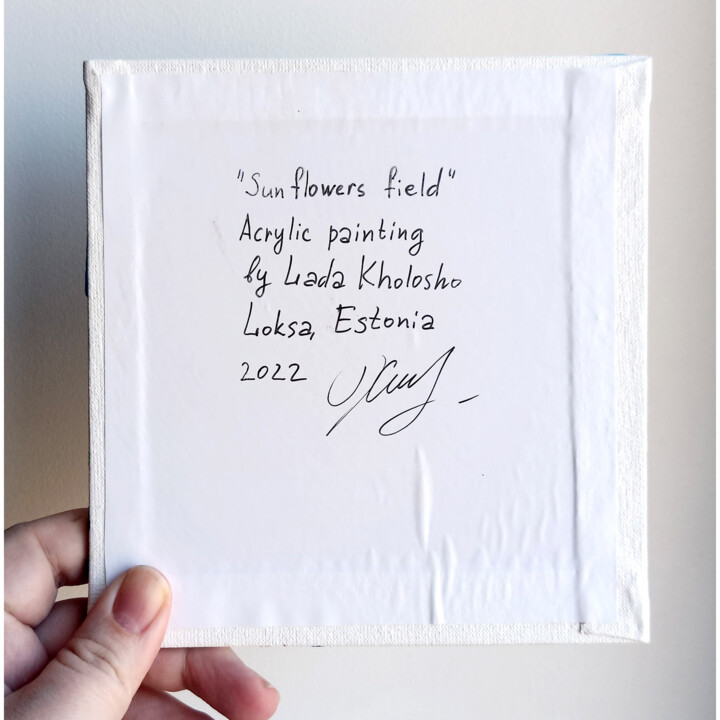 "Sunflowers field"
Acrylic painting
by Lada Kholosho
Loksa, Estonia
2022